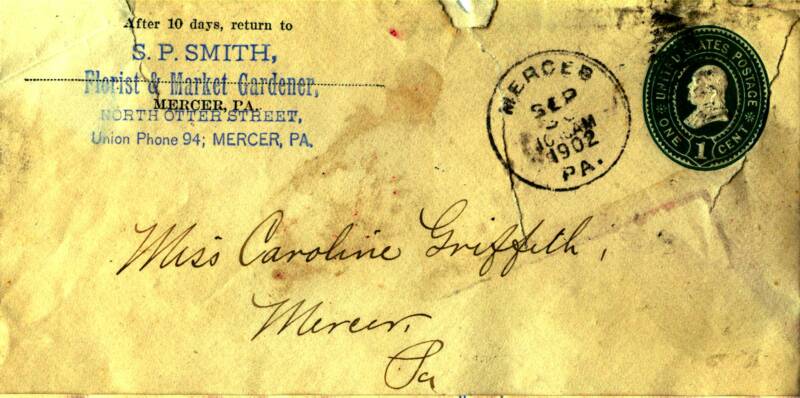 After 10 days, return to
S. P. SMITH,
Florist & Market Gardener,
MERCER, PA.
NORTH OTTER STREET,
Union Phone 94; MERCER, PA.
MERCER
SEP
1902
PA.
UNITED STATES POSTAGE
ONE 1 CENT
Miss Caroline Griffith,
Mercer,
Pa